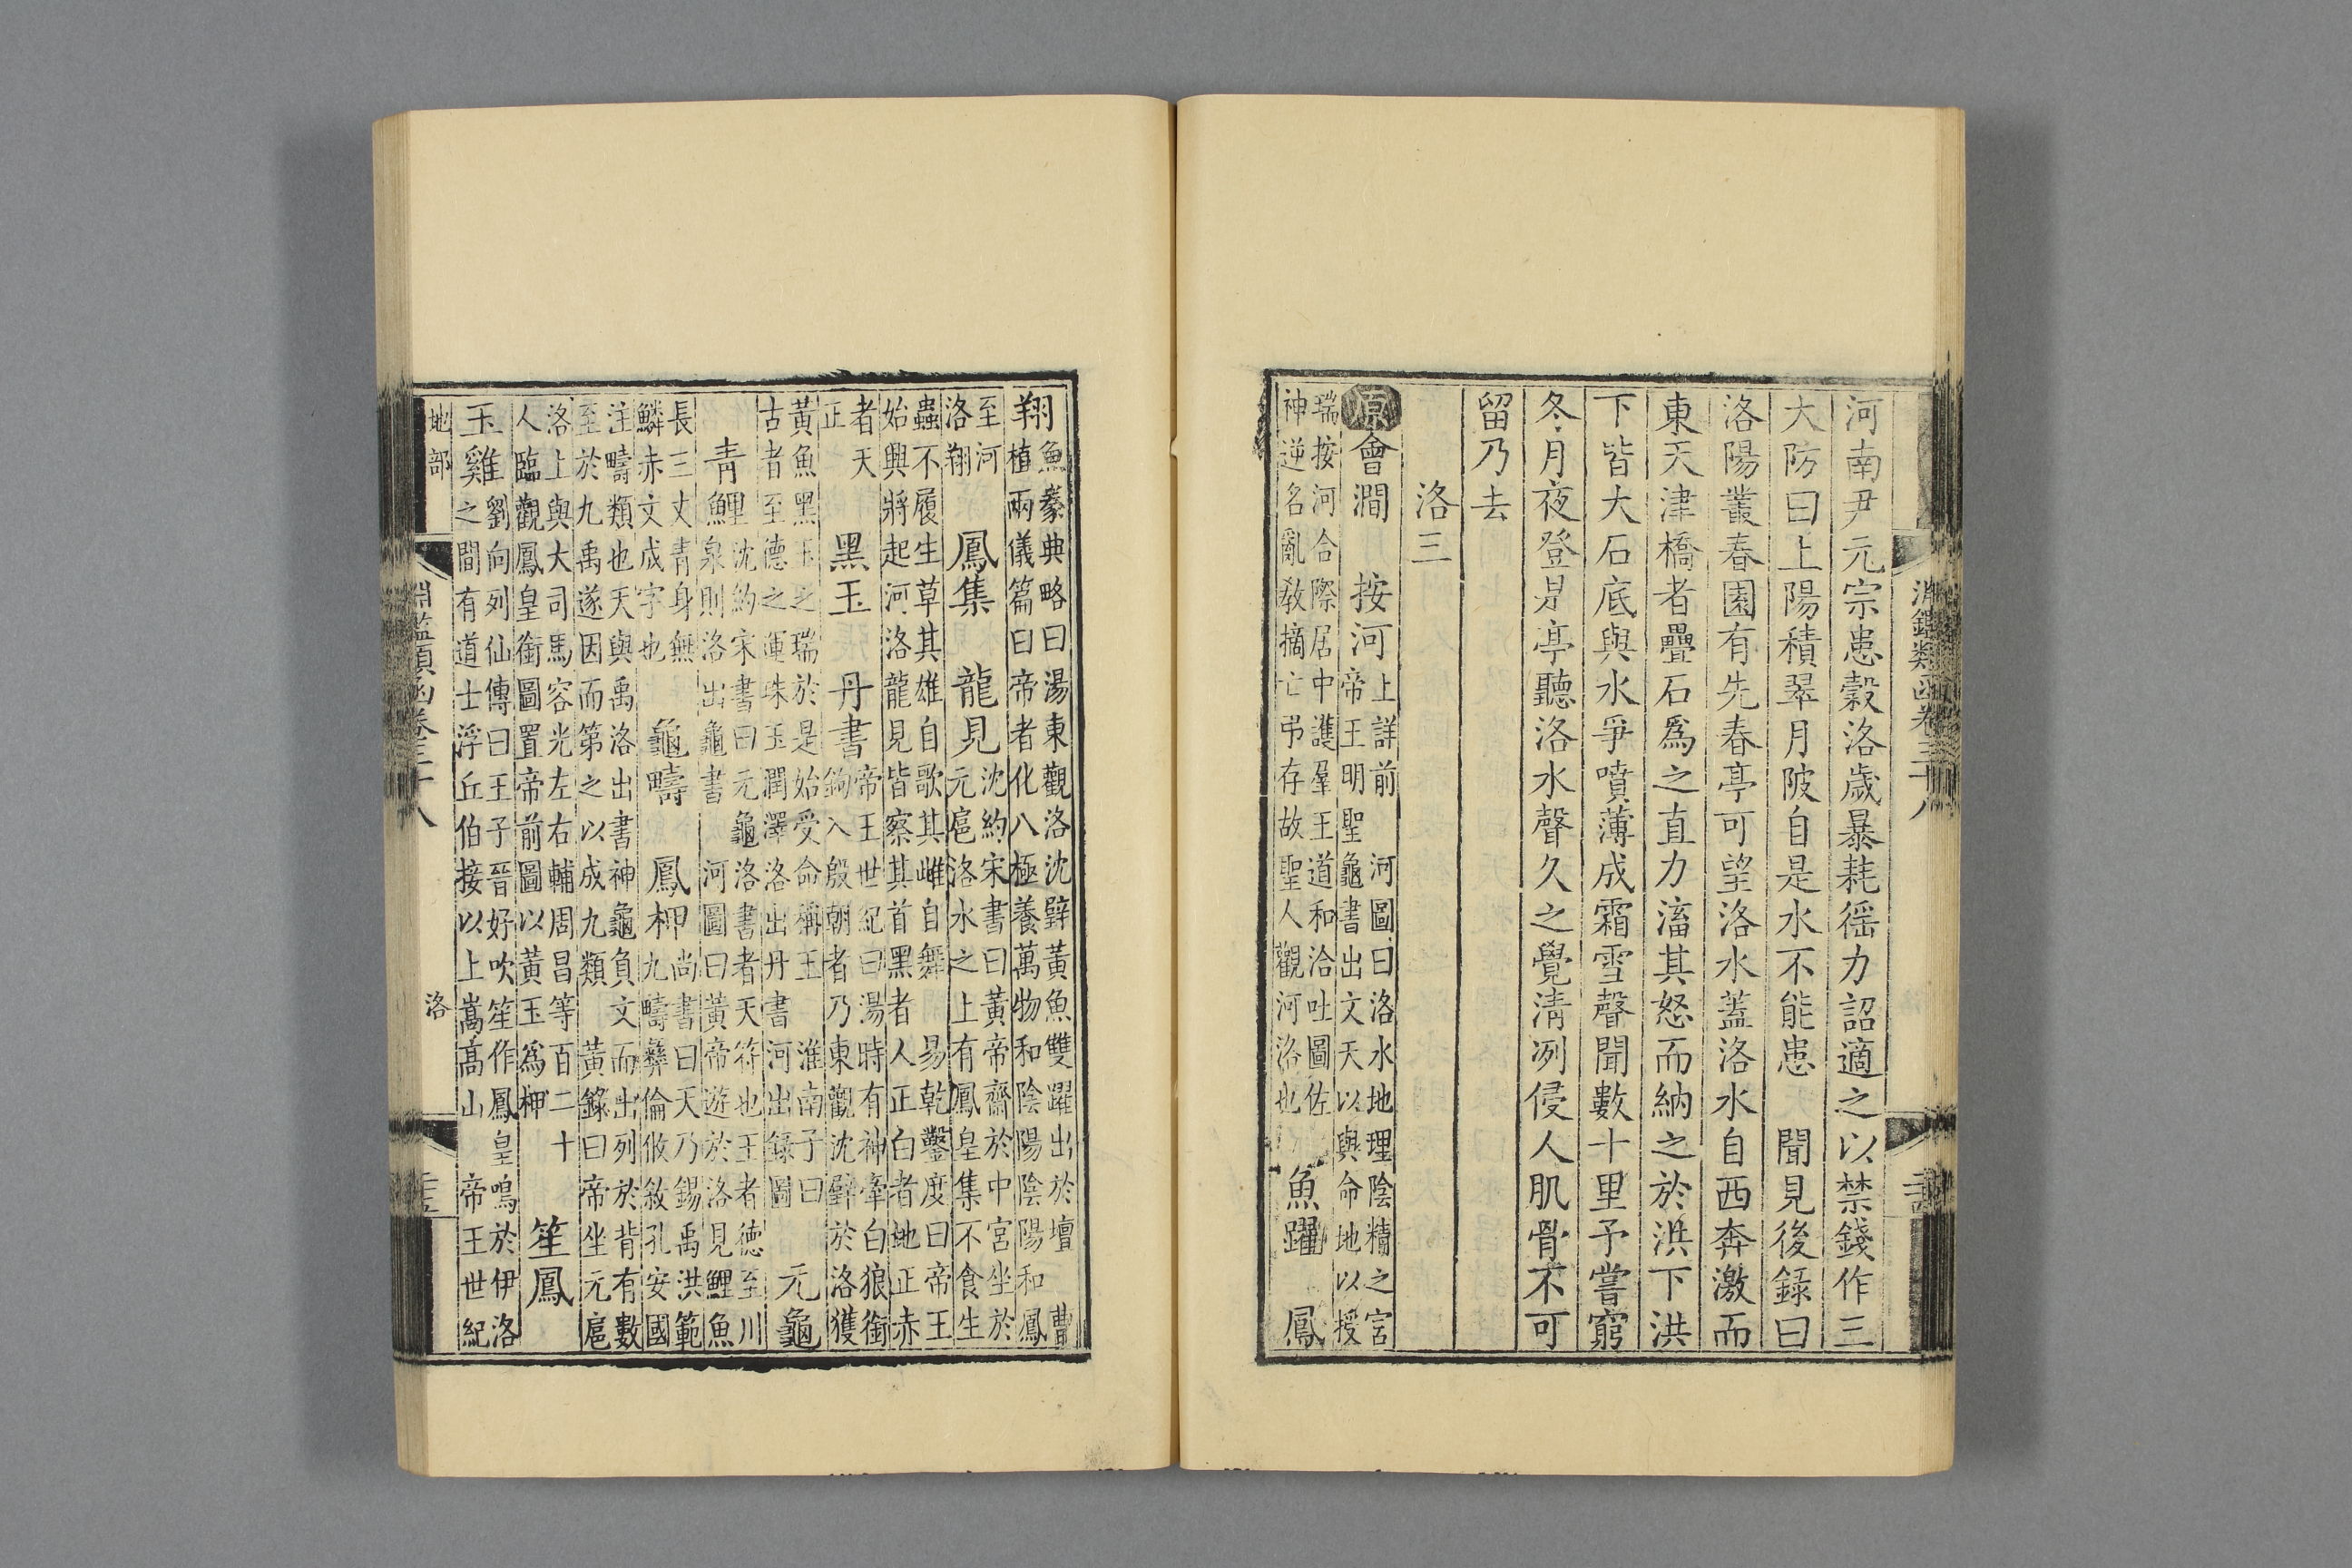 淵鑑類函卷三十八
河南尹元宗患穀洛歲暴耗徭力詔適之以禁錢作三
大防曰上陽積翠月陂自是水不能患　聞見後錄曰
洛陽叢春園有先春亭可望洛水蓋洛水自西奔激而
東天津橋者疊石爲之直力滀其怒而納之於洪下洪
下皆大石底與水爭噴薄成霜雪聲聞數十里予嘗窮
冬月夜登是亭聽洛水聲久之覺淸冽侵人肌骨不可
留乃去
洛三
原會澗　按河　上詳前　河圖曰洛水地理陰精之宮
帝王明聖龜書出文天以與命地以授
瑞按河合際居中護羣王道和洽吐圖佐
神逆名亂敎摘亡弔存故聖人觀河洛也　魚躍　鳳
翔　魚豢典略曰湯東觀洛沈璧黃魚雙躍出於壇　曹
植兩儀篇曰帝者化八極養萬物和陰陽陰陽和鳳
至河
洛翔　鳳集　龍見　沈約宋書曰黃帝齋於中宮坐於
元扈洛水之上有鳳皇集不食生
蟲不履生草其雄自歌其雌自舞　易乾鑿度曰帝王
始興將起河洛龍見皆察其首黑者人正白者地正赤
者天
正　黑玉　丹書　帝王世紀曰湯時有神牽白狼銜
鉤入殷朝者乃東觀沈璧於洛獲
黃魚黑玉之瑞於是始受命稱王　淮南子曰
古者至德之運珠玉潤澤洛出丹書河出錄圖　元龜
青鯉　沈約宋書曰元龜洛書者天符也王者德至川
泉則洛出龜書　河圖曰黃帝遊於洛見鯉魚
長三丈青身無
鱗赤文成字也　龜疇　鳳柙　尚書曰天乃錫禹洪範
九疇彝倫攸敘孔安國
注疇類也天與禹洛出書神龜負文而出列於背有數
至於九禹遂因而第之以成九類　黃錄曰帝坐元扈
洛上與大司馬容光左右輔周昌等百二十
人臨觀鳳皇銜圖置帝前圖以黃玉爲柙　笙鳳
玉雞　劉向列仙傳曰王子晉好吹笙作鳳皇鳴於伊洛
之間有道士浮丘伯接以上嵩高山　帝王世紀
地部　淵鑑類函卷三十八　洛